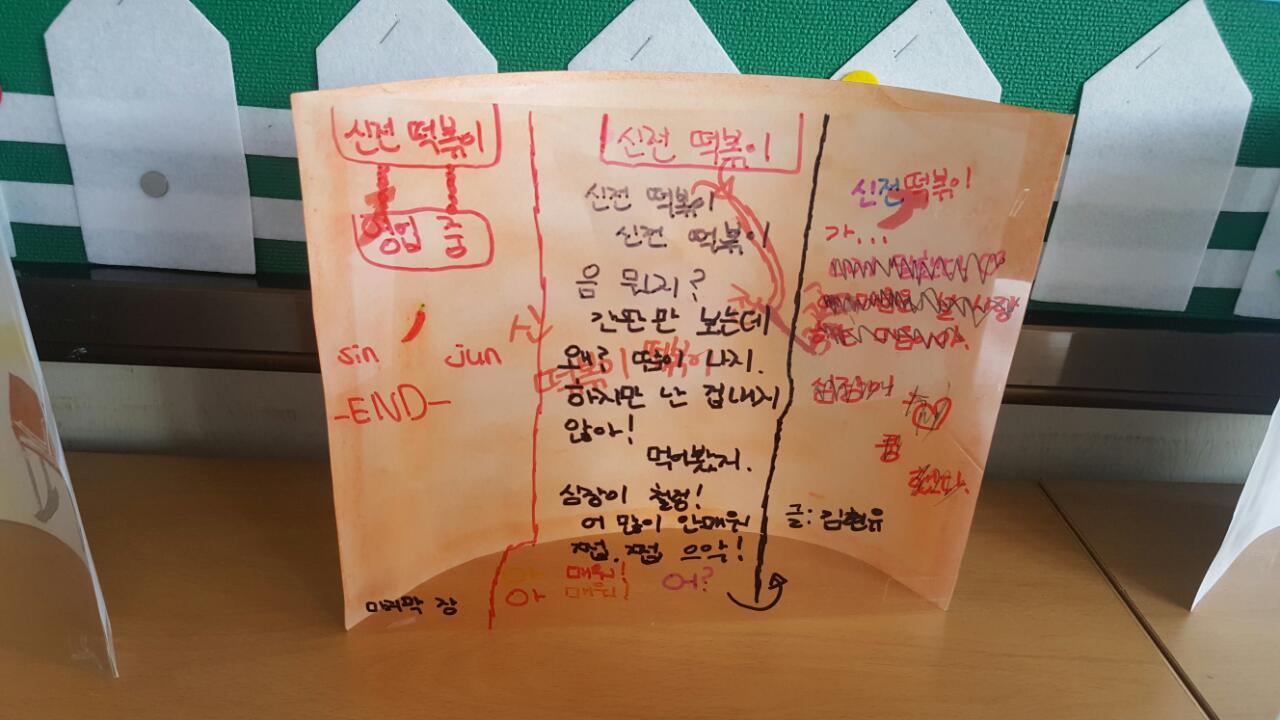 신전 떡볶이
영업 중
sin jun
-END-
마지막 장
신전 떡볶이
신전 떡볶이
신전 떡볶이
음 뭔지?
간판만 보는데
왜? 땀이 나지.
떡볶이 떡볶이
하지만 난 겁내지
않아!
먹어봤지.
심장이 철렁!
어 많이 안매워
쩝, 쩝 으악!
아 매워! 어?
아 매워!
신전 떡볶이
가...
글: 김현유